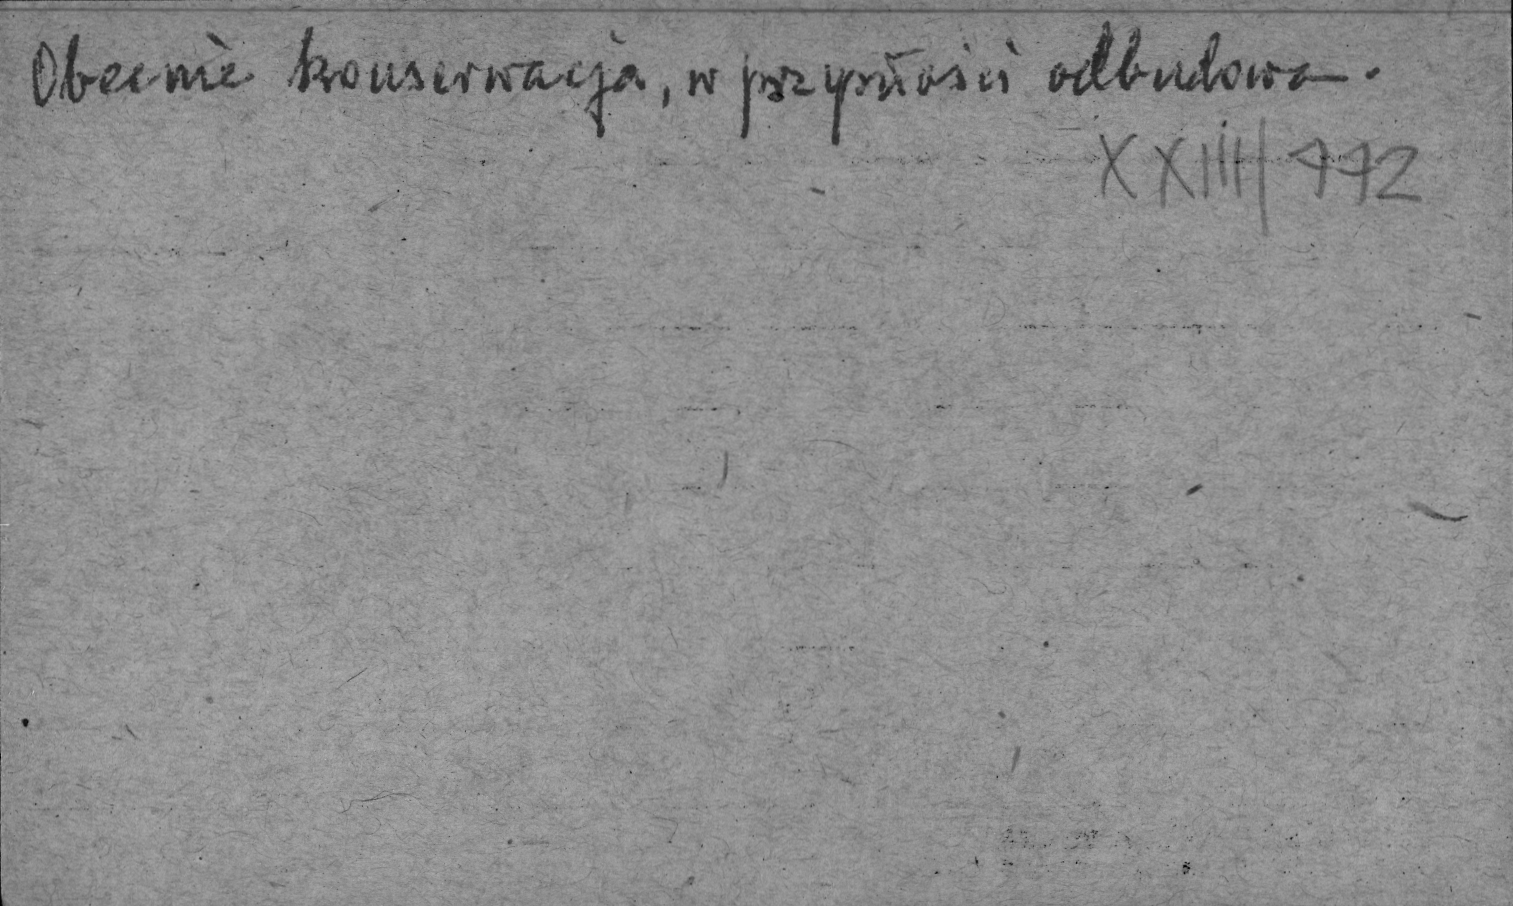 Obecnie konserwacja, w przyszłości odbudowa.
XXIII/972